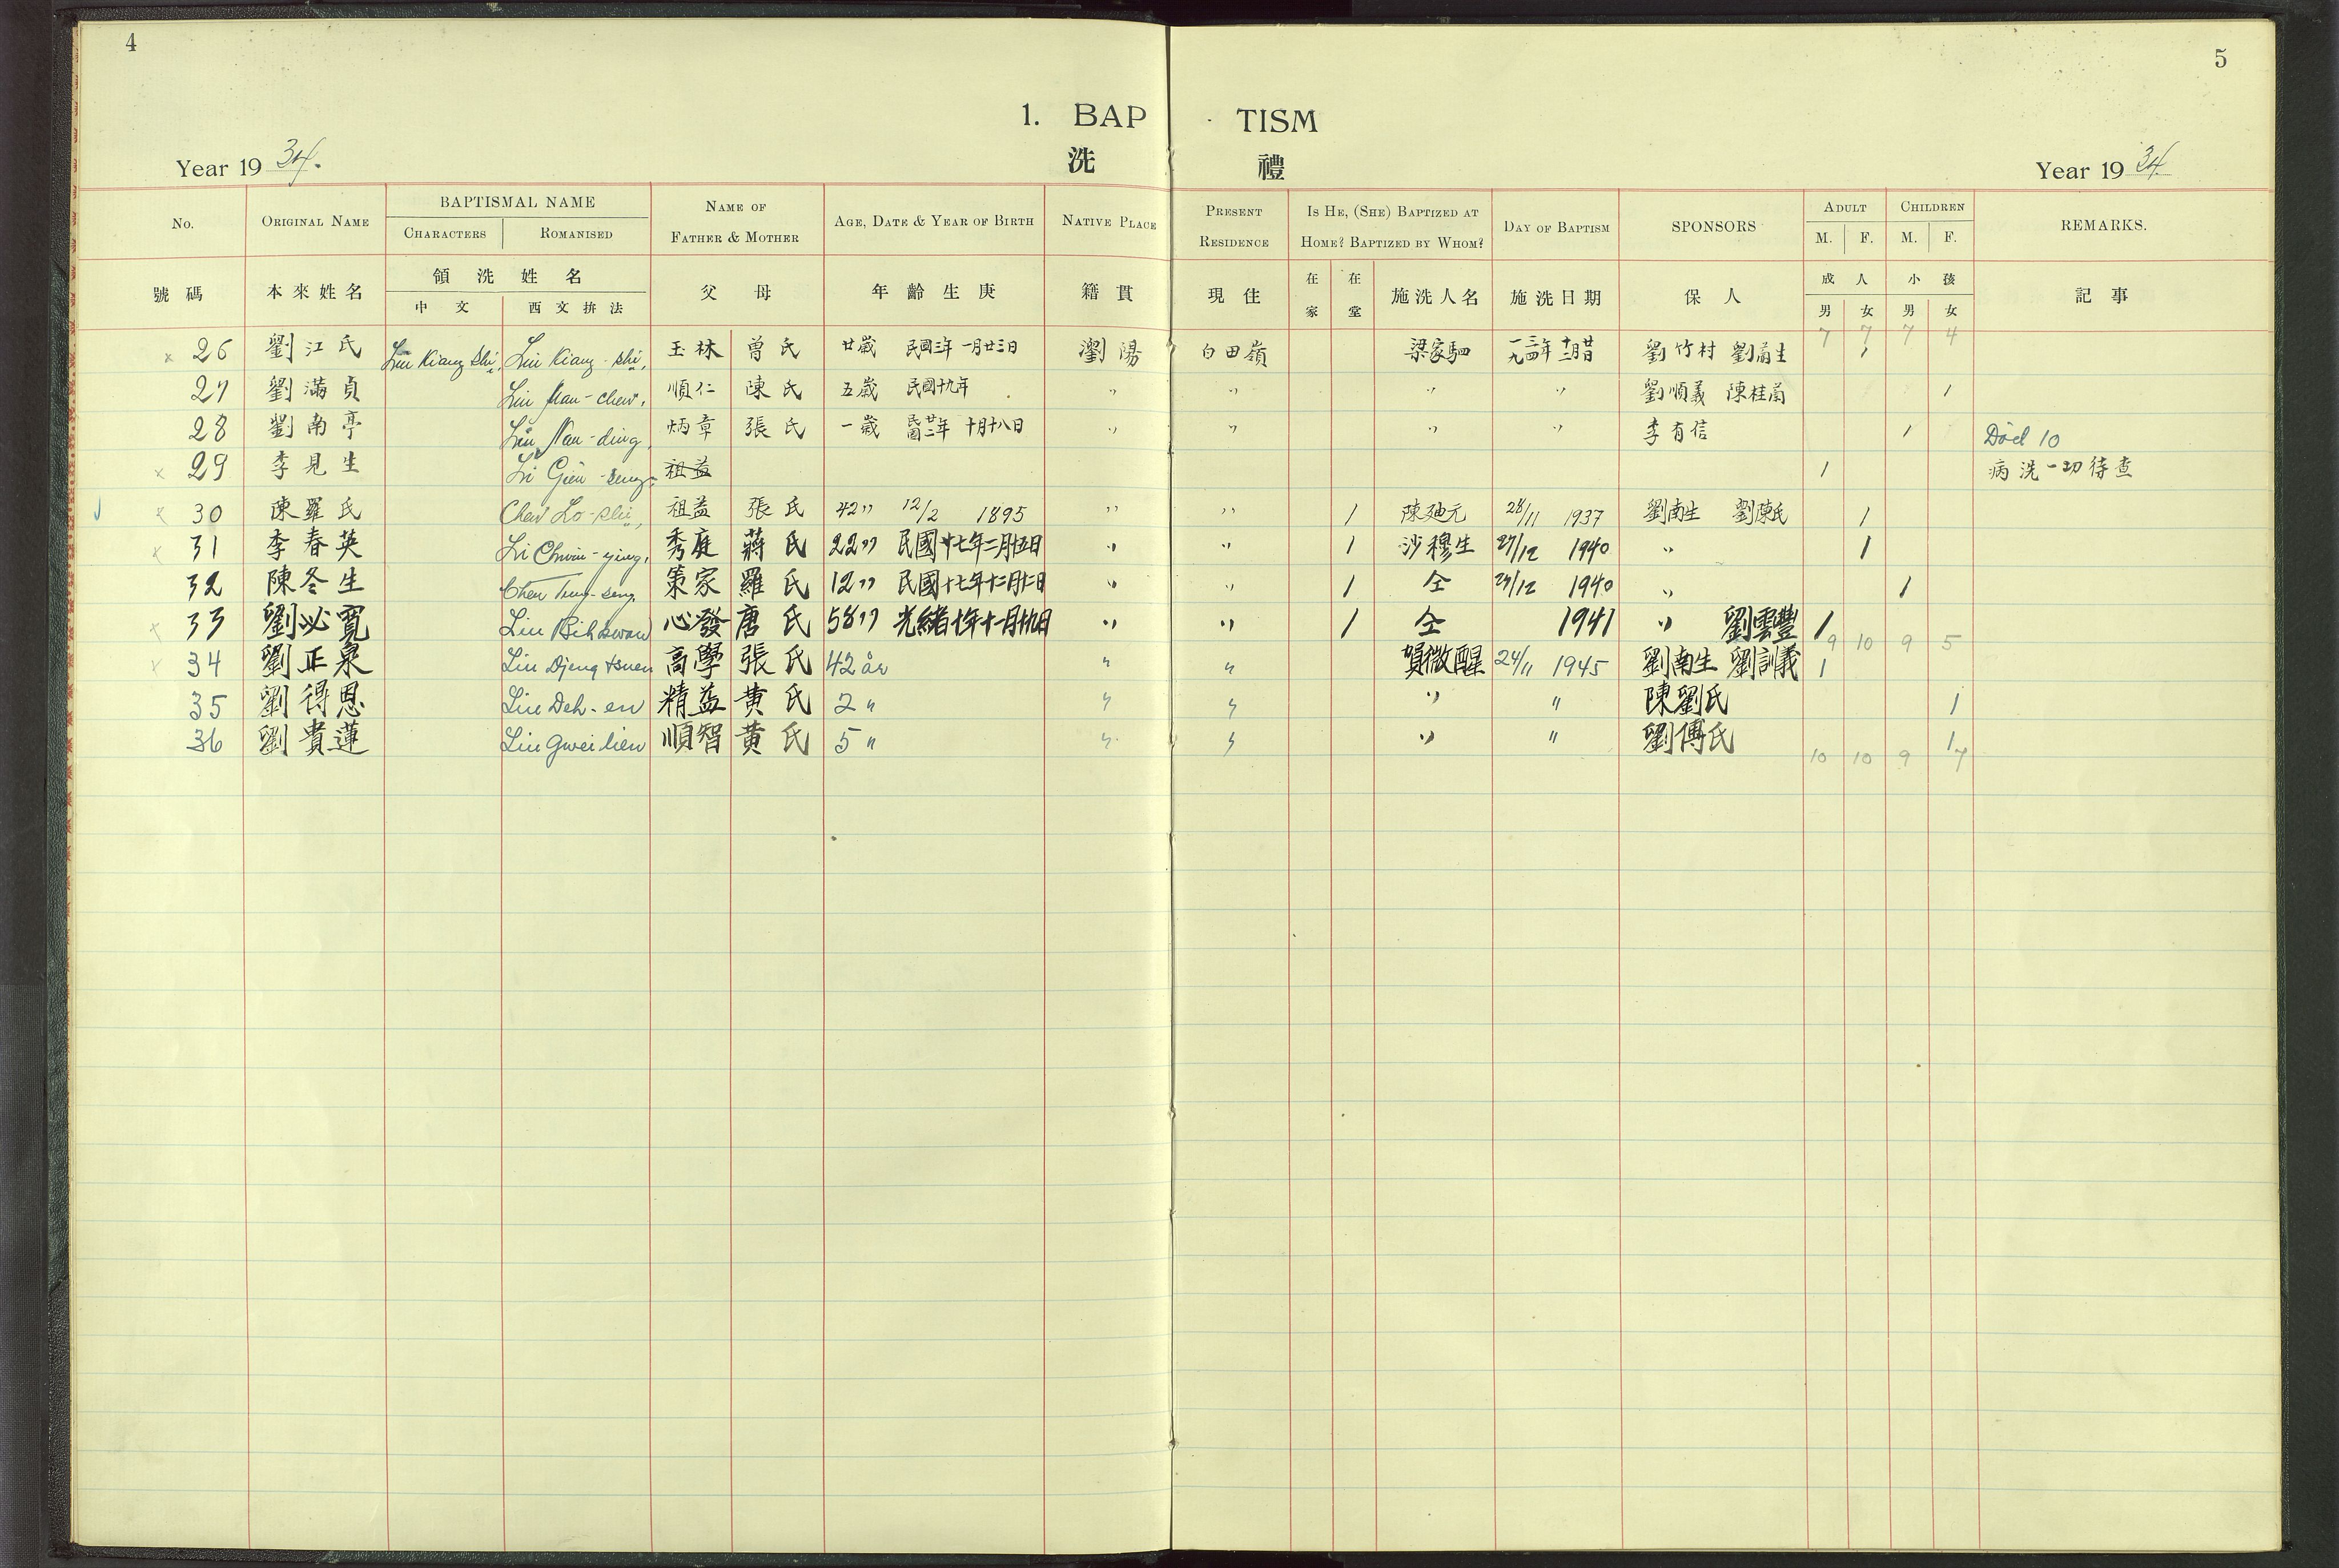 4
5
1. BAP TISM
洗 禮
Year 19 34.
Year 19 34.
No. ORIGINAL NAME BAPTISMAL NAME NAME OF FATHER & MOTHER AGE, DATE & YEAR OF BIRTH NATIVE PLACE PRESENT RESIDENCE IS HE, (SHE) BAPTIZED AT HOME? BAPTIZED BY WHOM? DAY OF BAPTISM SPONSORS ADULT CHILDREN REMARKS.
CHARACTERS ROMANISED M. F. M. F.
號碼 本來姓名 領洗姓名 父 母 年齡生庚 籍貫 現住 在家 在堂 施洗人名 施洗日期 保人 成人 小孩 記事
中文 西文拚法 男 女 男 女
7 7 7 4
x 26 劉江氏 Liu Kiang Shi, Liu Kiang-shi, 玉林 曾氏 廿歲 民國三年一月廿三日 瀏陽 白田嶺 梁家駟 一九三四年 劉竹村 劉南生 1
27 劉滿貞 Liu Man-chen, 順仁 陳氏 五歲 民國十九年 〃 〃 〃 〃 劉順義 陳桂蘭 1
28 劉南亭 Liu Nan-ding, 炳章 張氏 一歲 民國廿二年 十月十八日 〃 〃 〃 〃 李有信 1 Död 10
x 29 李見生 Li Gien-seng, 祖益 1 病洗一切待查
x 30 陳羅氏 Chen Lo-shi, 祖益 張氏 42〃 12/2 1895 〃 〃 1 陳廸元 28/11 1937 劉南生 劉陳氏 1
x 31 李春英 Li Chwin-ying, 秀庭 蔣氏 22〃 民國十七年二月五日 〃 〃 1 沙穆生 27/12 1940 〃 1
32 陳冬生 Chen Tung-seng, 策家 羅氏 12〃 民國十七年十二月二日 〃 〃 1 仝 27/12 1940 〃 1
x 33 劉必寬 Liu Bih kwan 心發 唐氏 58〃 光緒十年十一月十九日 〃 〃 1 仝 1941 〃 劉雲豐 1
9 10 9 5
x 34 劉正泉 Liu Djeng tsuen 高學 張氏 42 år 〃 〃 賀微醒 24/11 1945 劉南生 劉訓義 1
35 劉得恩 Liu Deh-en 精益 黄氏 2 〃 〃 〃 〃 〃 陳劉氏 1
36 劉貴蓮 Liu Gwei lien 順智 黄氏 5 〃 〃 〃 〃 〃 劉傅氏 1
10 10 9 7